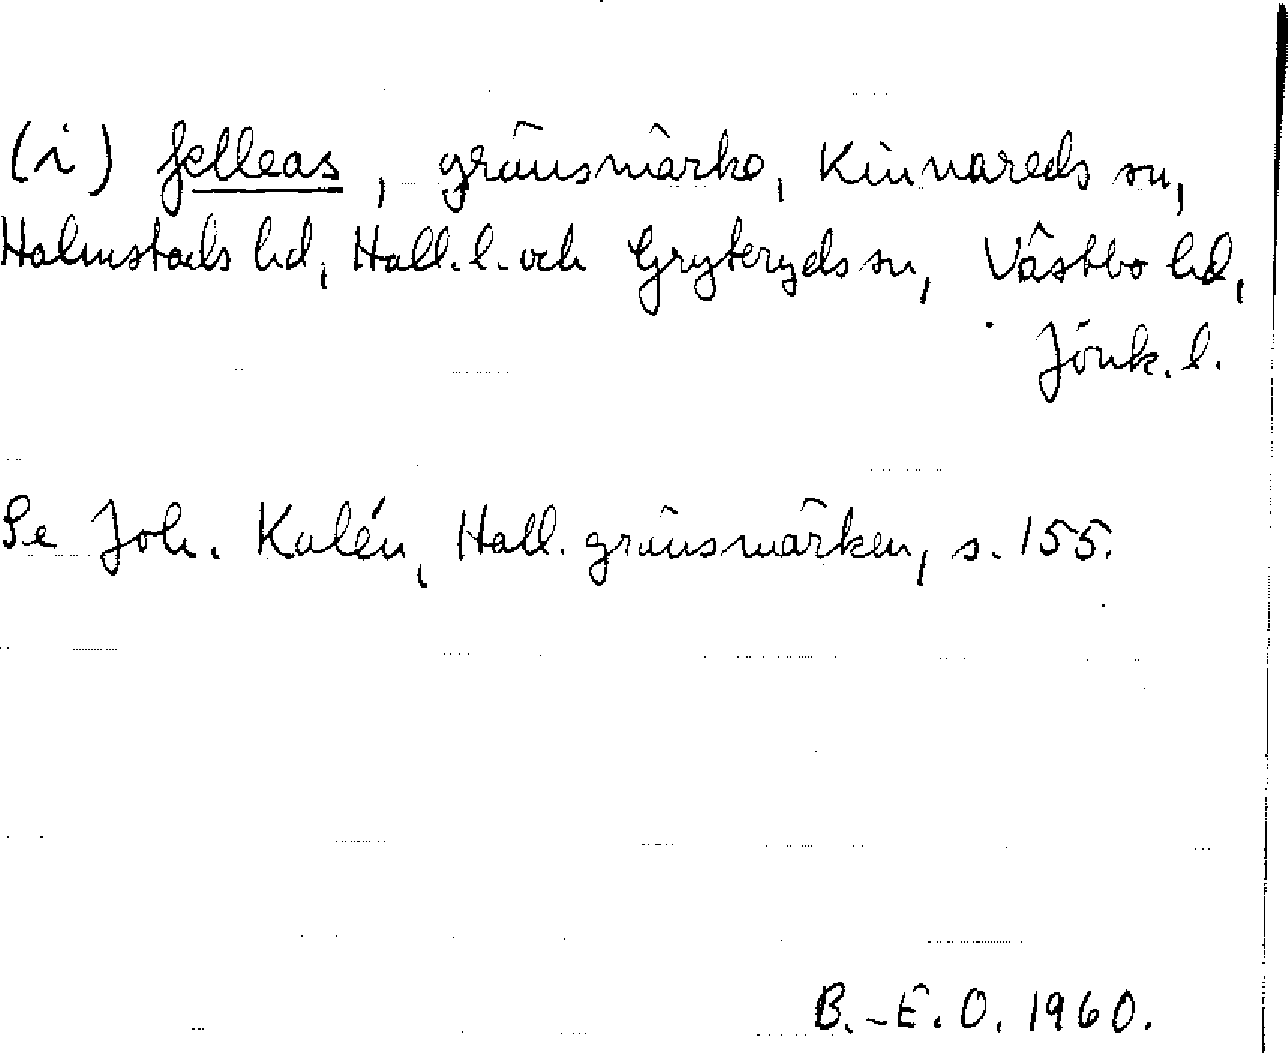 (i) felleas, gränsmärke, Kinnareds sn,
Halmstads hd, Hall. l. och Gryteryds sn, Västbo hd,
Jönk. l.
Se Joh. Kalén, Hall. gränsmärken, s. 155.
B.-E. O. 1960.